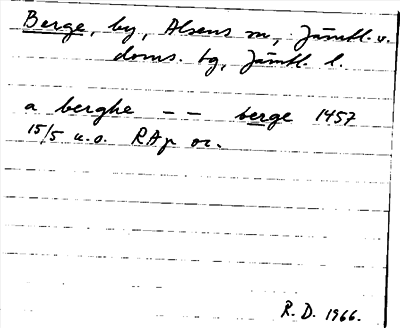 Berge, by, Alsens sn, Jämtl. v.
doms. tg, Jämtl. l.
a berghe – – berge 1457
15/5 u.o. RAp or.
R. D. 1966.